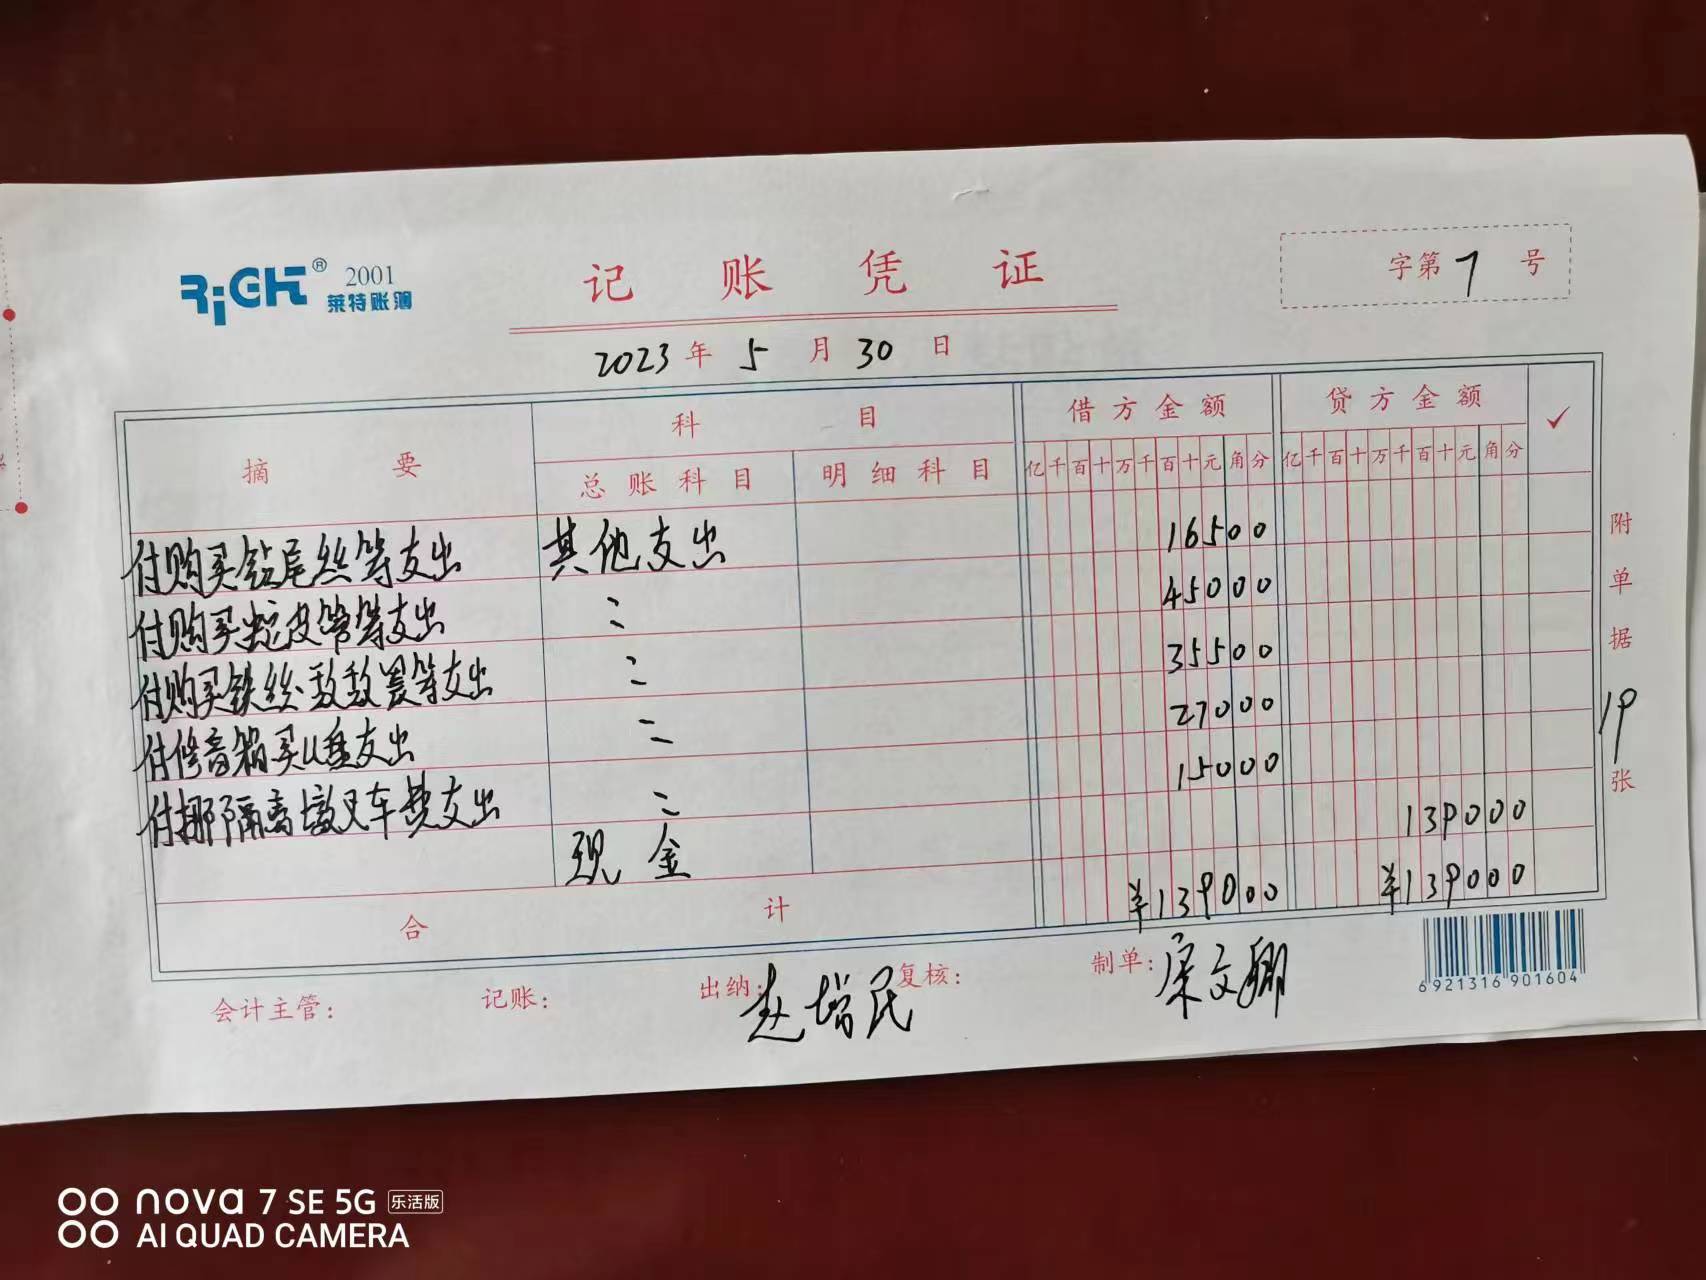 RiGHT® 2001
莱特账簿
记账凭证
字第 7 号
2023 年 5 月 30 日
摘要 科目 借方金额 贷方金额 ✓
总账科目 明细科目 亿千百十万千百十元角分 亿千百十万千百十元角分
付购买钻尾丝等支出 其他支出 16500
付购买蛇皮带等支出 〃 45000
付购买铁丝、敌敌畏等支出 〃 35500
付修音箱买U盘支出 〃 27000
付挪隔离墩叉车费支出 〃 15000
现金 139000
合计 ¥139000 ¥139000
附单据 19 张
会计主管: 记账: 出纳: 赵增民 复核: 制单: 宋文娜
6 921316 901604
nova 7 SE 5G 乐活版
AI QUAD CAMERA